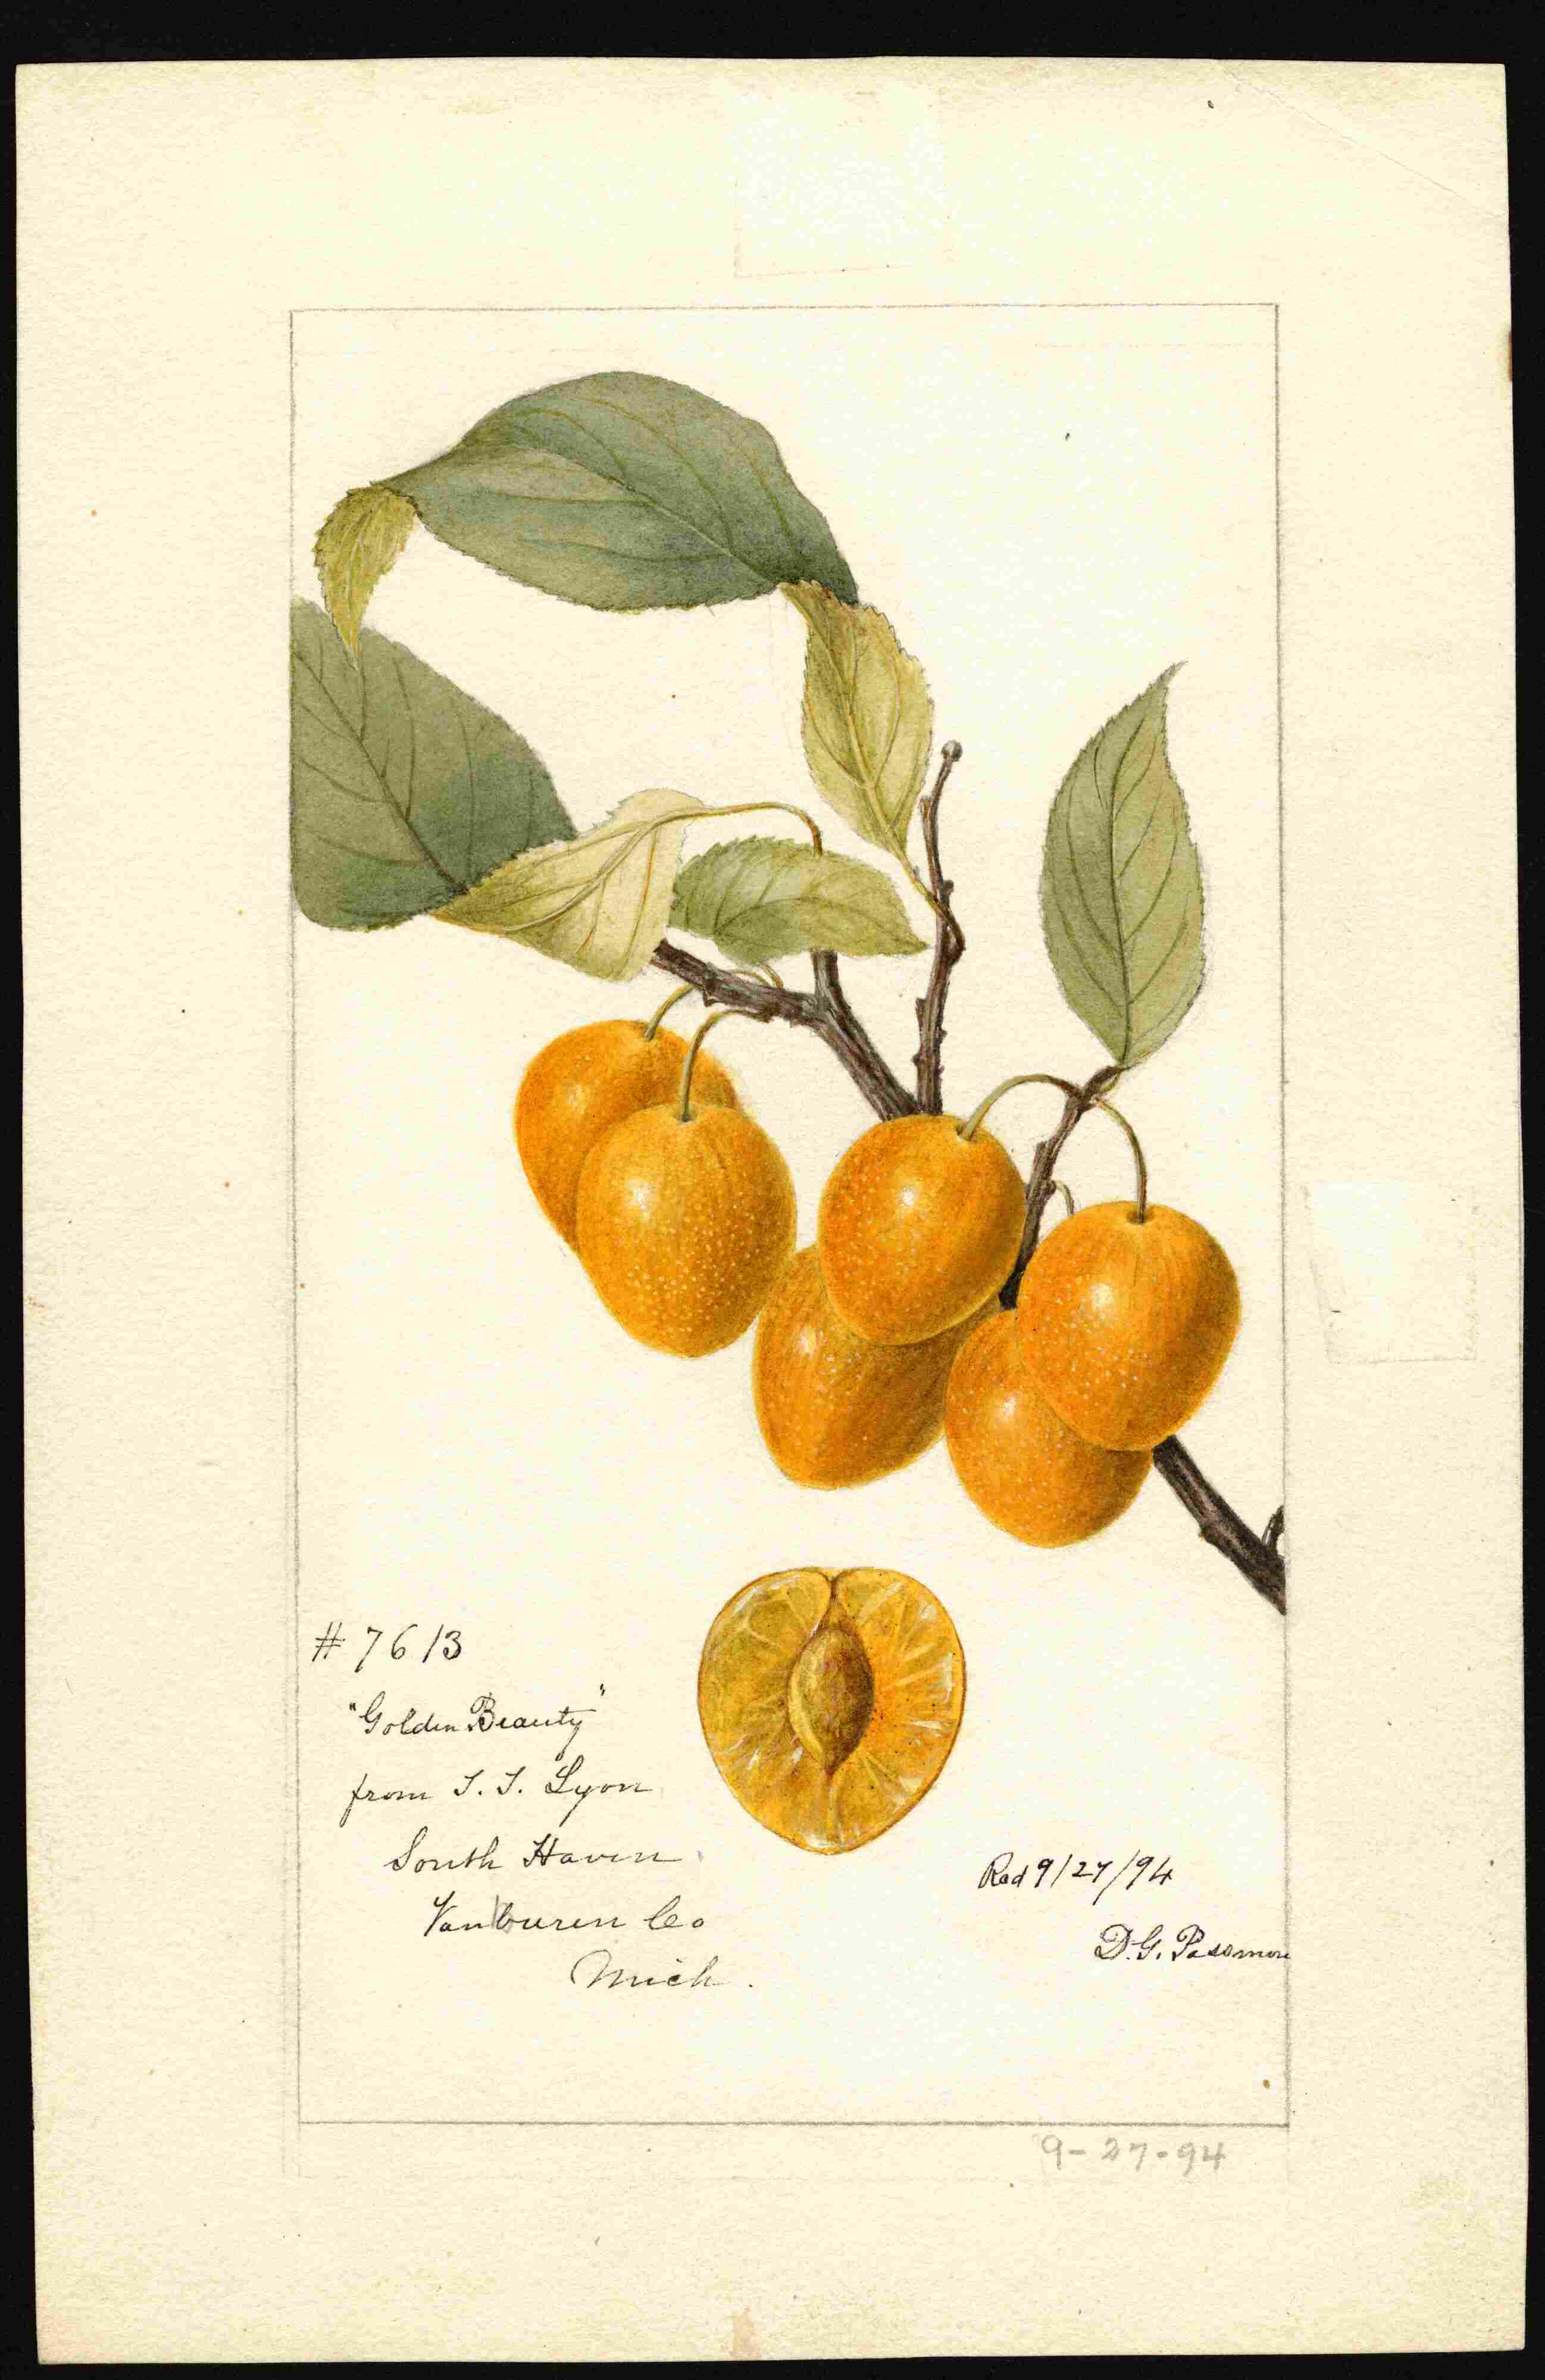 # 7613
"Golden Beauty"
from T. T. Lyon
South Haven
Vanburen Co
Mich.
Rcd 9/27/94
D. G. Passmore
9-27-94